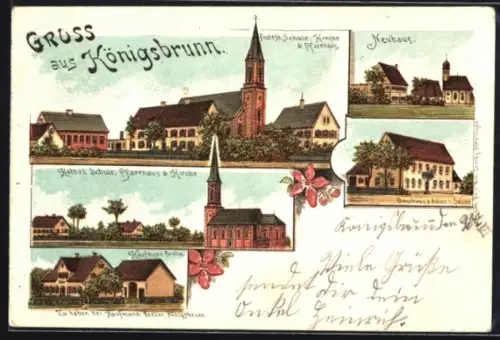 GRUSS
aus Königsbrunn.
Protest. Schule, Kirche
& Pfarrhaus
Neuhaus.
Kathol. Schule, Pfarrhaus & Kirche
Kaufmann
Zu haben bei Kaufmann Königsbrunn.
Königsbrunn den
Viele Grüße
sendet dir dein
Onkel
Heinrich.